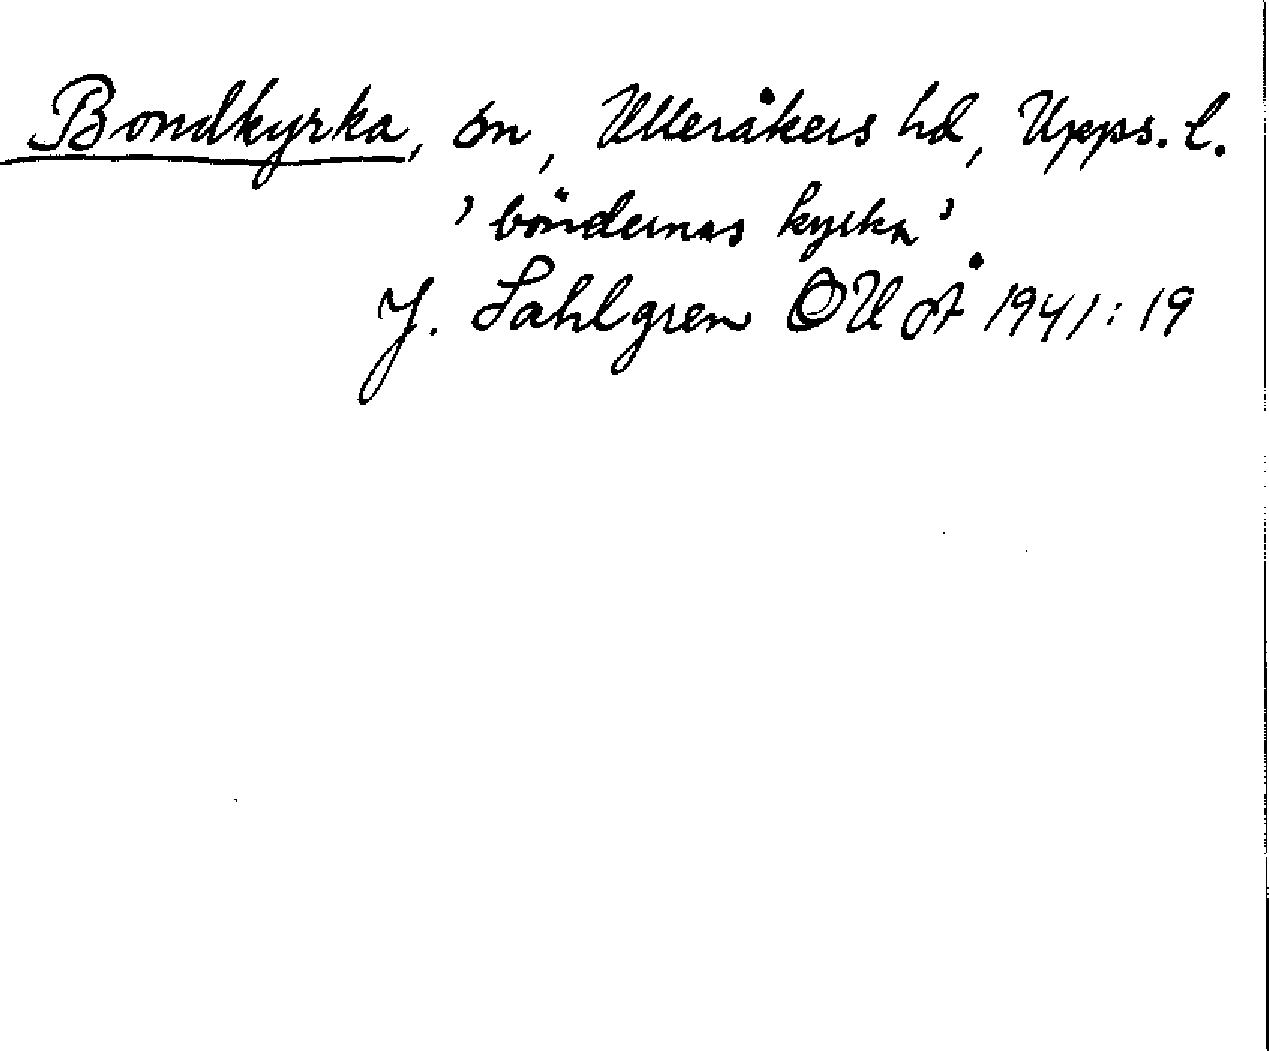 Bondkyrka, sn, Ulleråkers hd, Upps. l.
'böndernas kyrka'
J. Sahlgren OUÅ 1941:19